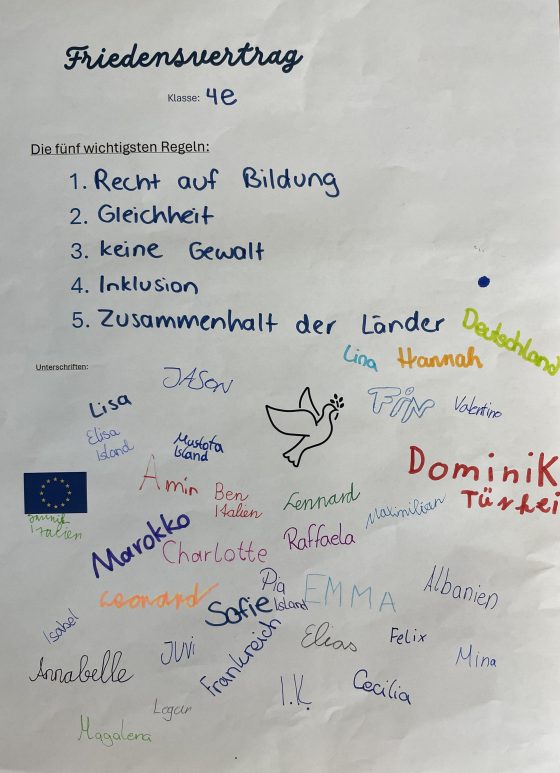 Friedensvertrag
Klasse: 4e
Die fünf wichtigsten Regeln:
1. Recht auf Bildung
2. Gleichheit
3. keine Gewalt
4. Inklusion
5. Zusammenhalt der Länder
Deutschland
Unterschriften:
Lina
Hannah
JASON
Lisa
FIN
Valentino
Elisa
Island
Mustafa
Island
Dominik
Türkei
Amin
Ben
Italien
Lennard
Maximilian
Italien
Marokko
Charlotte
Raffaela
Leonard
Pia
Island
Sofie
EMMA
Albanien
Isabel
Frankreich
Elias
Felix
Mina
Annabelle
JUVI
I.K.
Cecilia
Magdalena